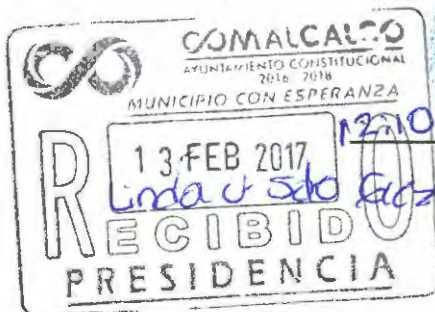 COMALCALCO
AYUNTAMIENTO CONSTITUCIONAL
2016 2018
MUNICIPIO CON ESPERANZA
12:10
13 FEB 2017
Linda
RECIBIDO
PRESIDENCIA